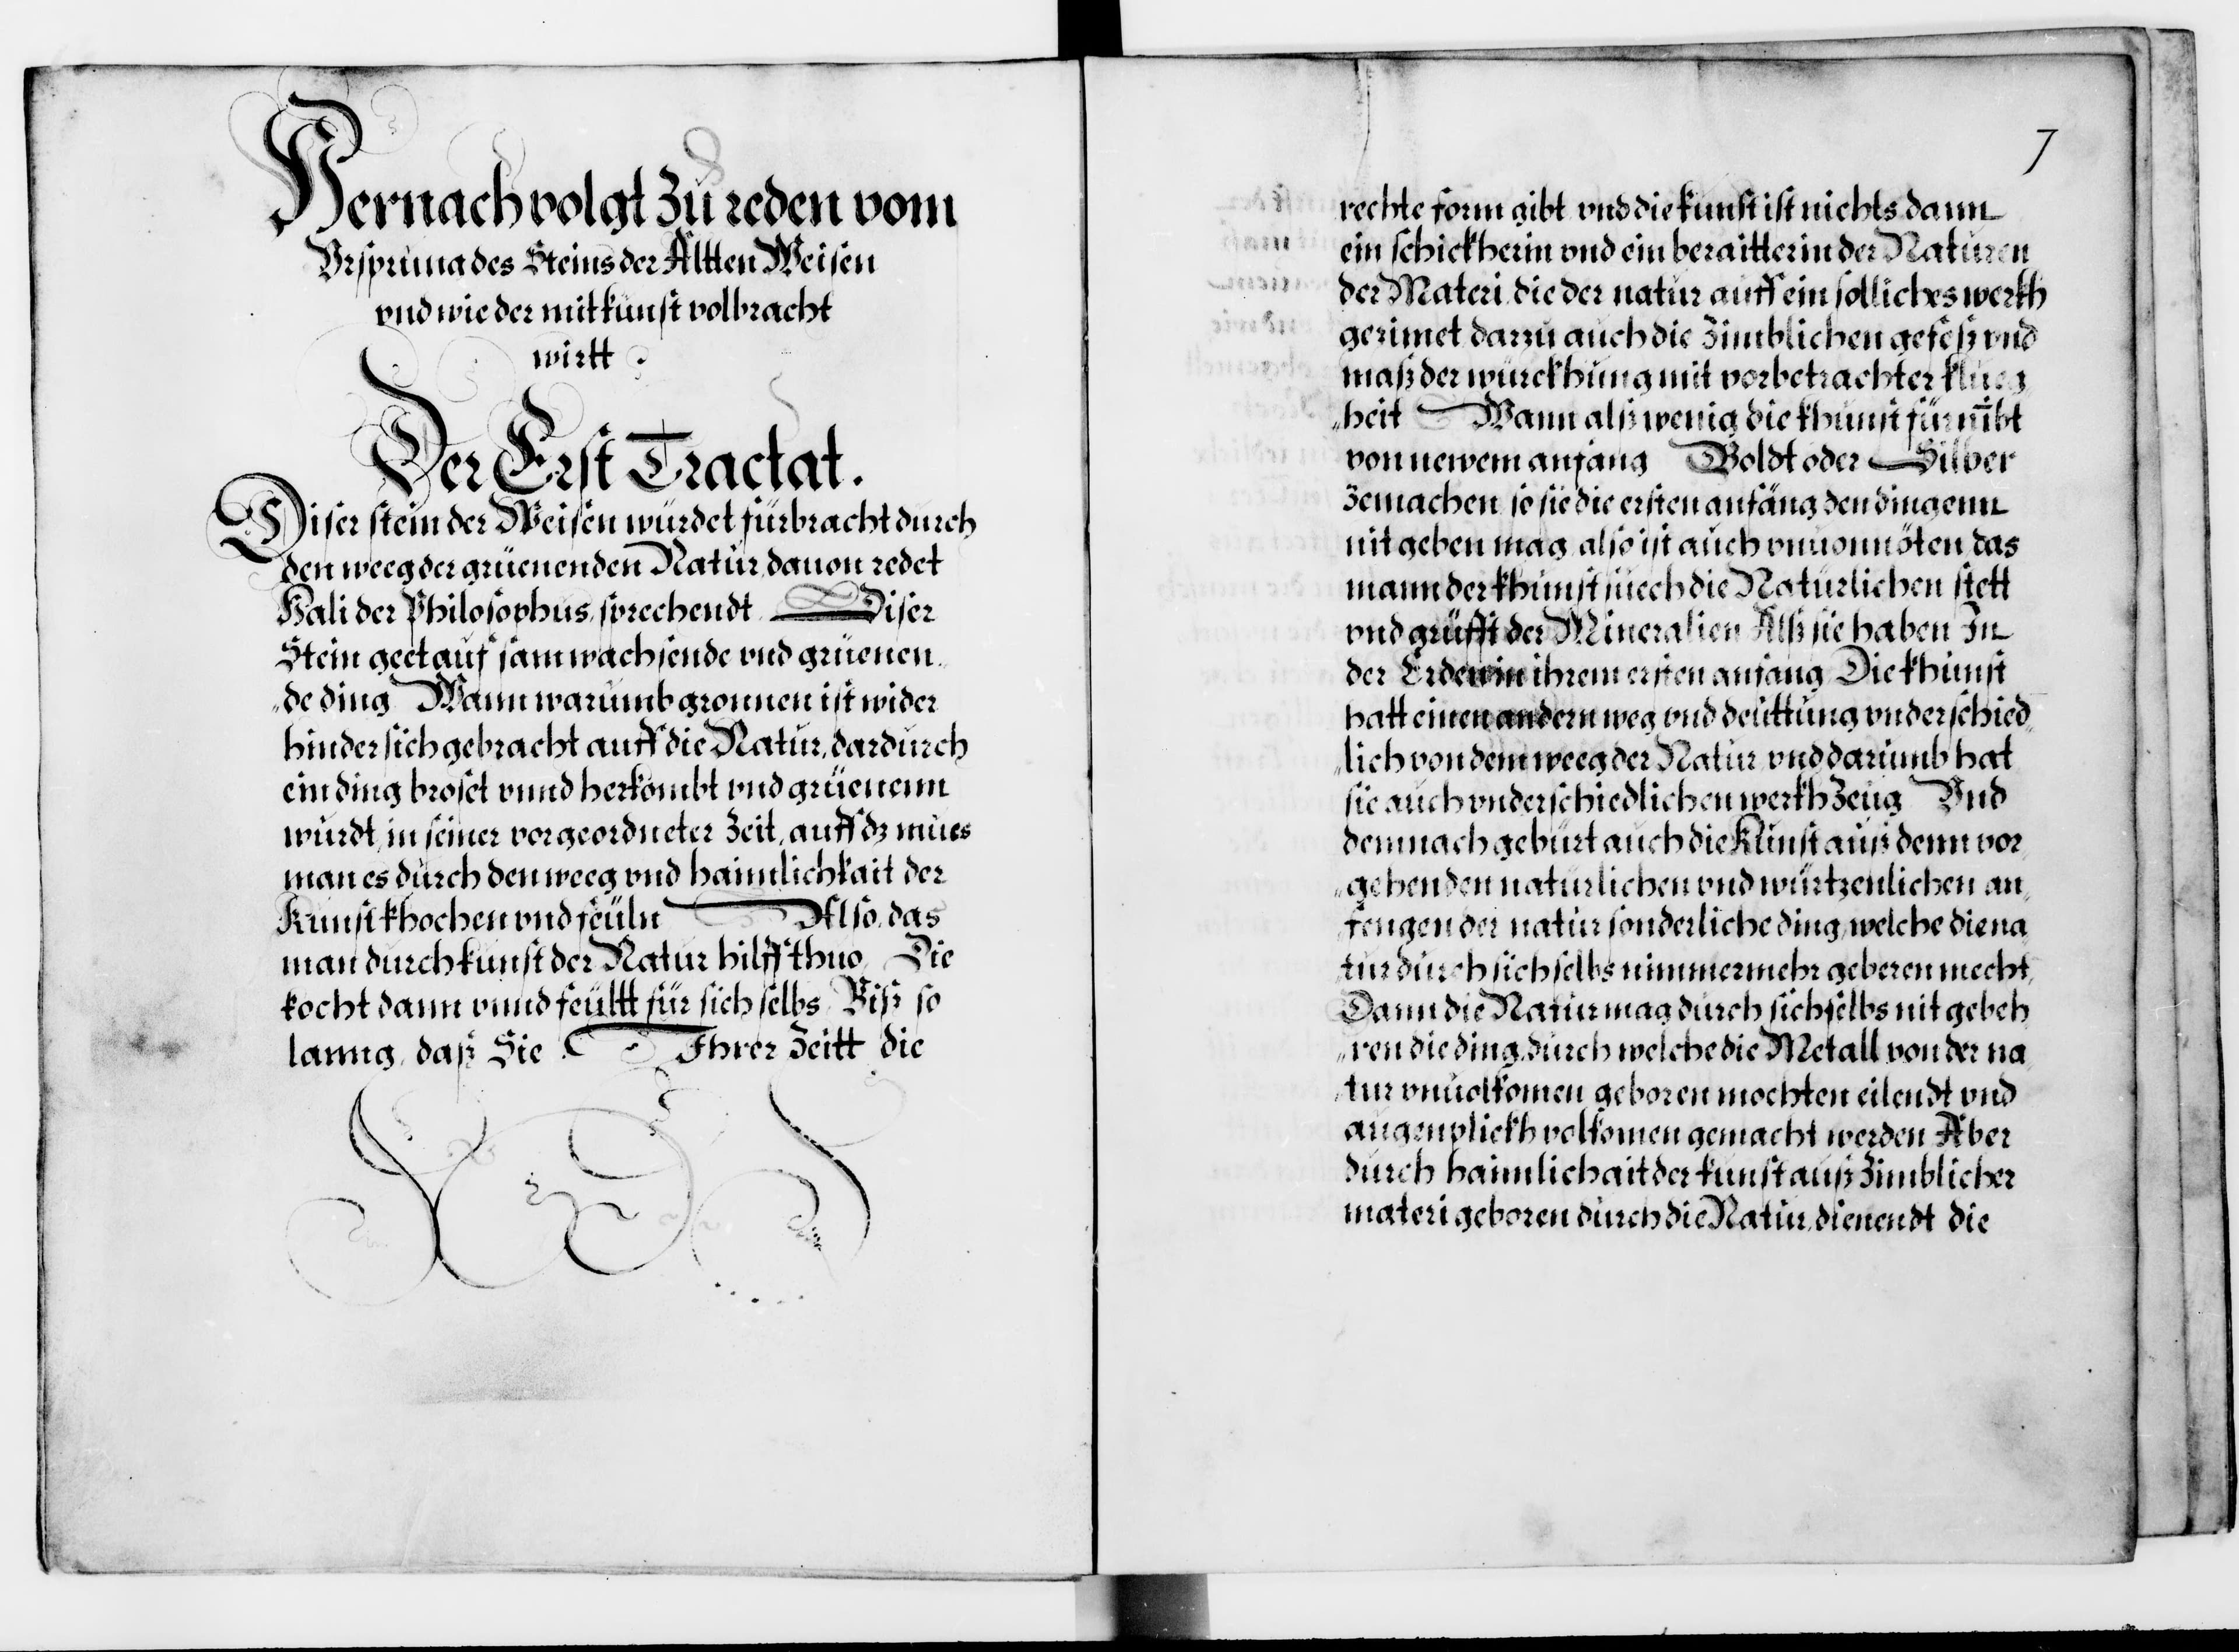 Hernach volgt zu reden vom
Vrsprung des Steins der Altten Weisen
vnd wie der mit kunst volbracht
wirtt .
Der Erst Tractat.
Diser stein der Weisen würdet fürbracht durch
den weeg der grüenenden Natur, dauon redet
Hali der Philosophus, sprechendt Diser
Stein geet auf sam wachsende vnd grüenen„
„de ding Wann warumb gronnen ist wider
hinder sich gebracht auff die Natur, dardurch
ein ding broset vnnd herkombt vnd grüenenn
würdt, in seiner vorgeordneter Zeit, auff dz mues
man es durch den weeg vnd haimlichkait der
Kunst khochen vnd feüln Also, das
man durch kunst der Natur hilff thuo, Die
kocht dann vnnd feültt für sich selbs Biß so
lanng, daß Sie Ihrer Zeitt die
7
rechte form gibt vnd die kunst ist nichts dann
ein schickherin vnd ein beraitterin der Naturen
der Materi die der natur auff ein solliches werkh
gerimet darzu auch die Zimblichen gefeß vnd
maß der würckhung mit vorbetrachter klueg
„heit Wann alß wenig die khunst fürnībt
von newem anfang Goldt oder Silber
Zemachen so sie die ersten anfäng den dingenn
nit geben mag, also ist auch vnuonnöten, das
mann der khunst suech die Naturlichen stett
vnd grüfft der Mineralien Alß sie haben In
der Erden in ihrem ersten anfang Die khunst
hatt einen andern weg vnd deuttung vnderschied„
„lich von dem weeg der Natur vnd darumb hat
sie auch vnderschiedlichen werkhZeug Vnd
demnach gebürt auch die Kunst auß denn vor„
„gehenden naturlichen vnd würtzenlichen an„
„fengen der natur sonderliche ding, welche die na„
„tur durch sich selbs nimmermehr geberen mecht,
Dann die Natur mag durch sich selbs nit gebeh
„ren die ding, durch welche die Metall von der na
„tur vnuolkomen geboren mochten eilendt vnd
augenplickh volkomen gemacht werden Aber
durch haimlichait der kunst auß Zimblicher
materi geboren durch die Natur, dienendt die